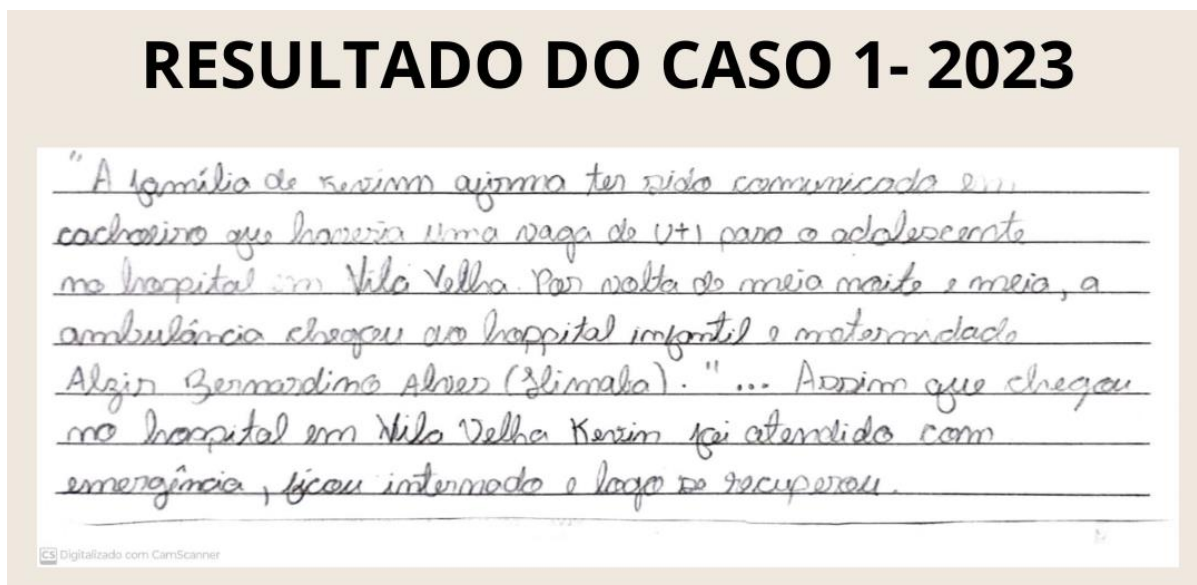 RESULTADO DO CASO 1- 2023
"A família de Kevinn afirma ter sido comunicada em
cachoeiro que haveria uma vaga de UTI para o adolescente
no hospital em Vila Velha. Por volta de meia noite e meia, a
ambulância chegou ao hospital infantil e maternidade
Alzir Bernardino Alves (Himaba)." ... Assim que chegou
no hospital em Vila Velha Kevin foi atendido com
emergência, ficou internado e logo se recuperou.
CS Digitalizado com CamScanner